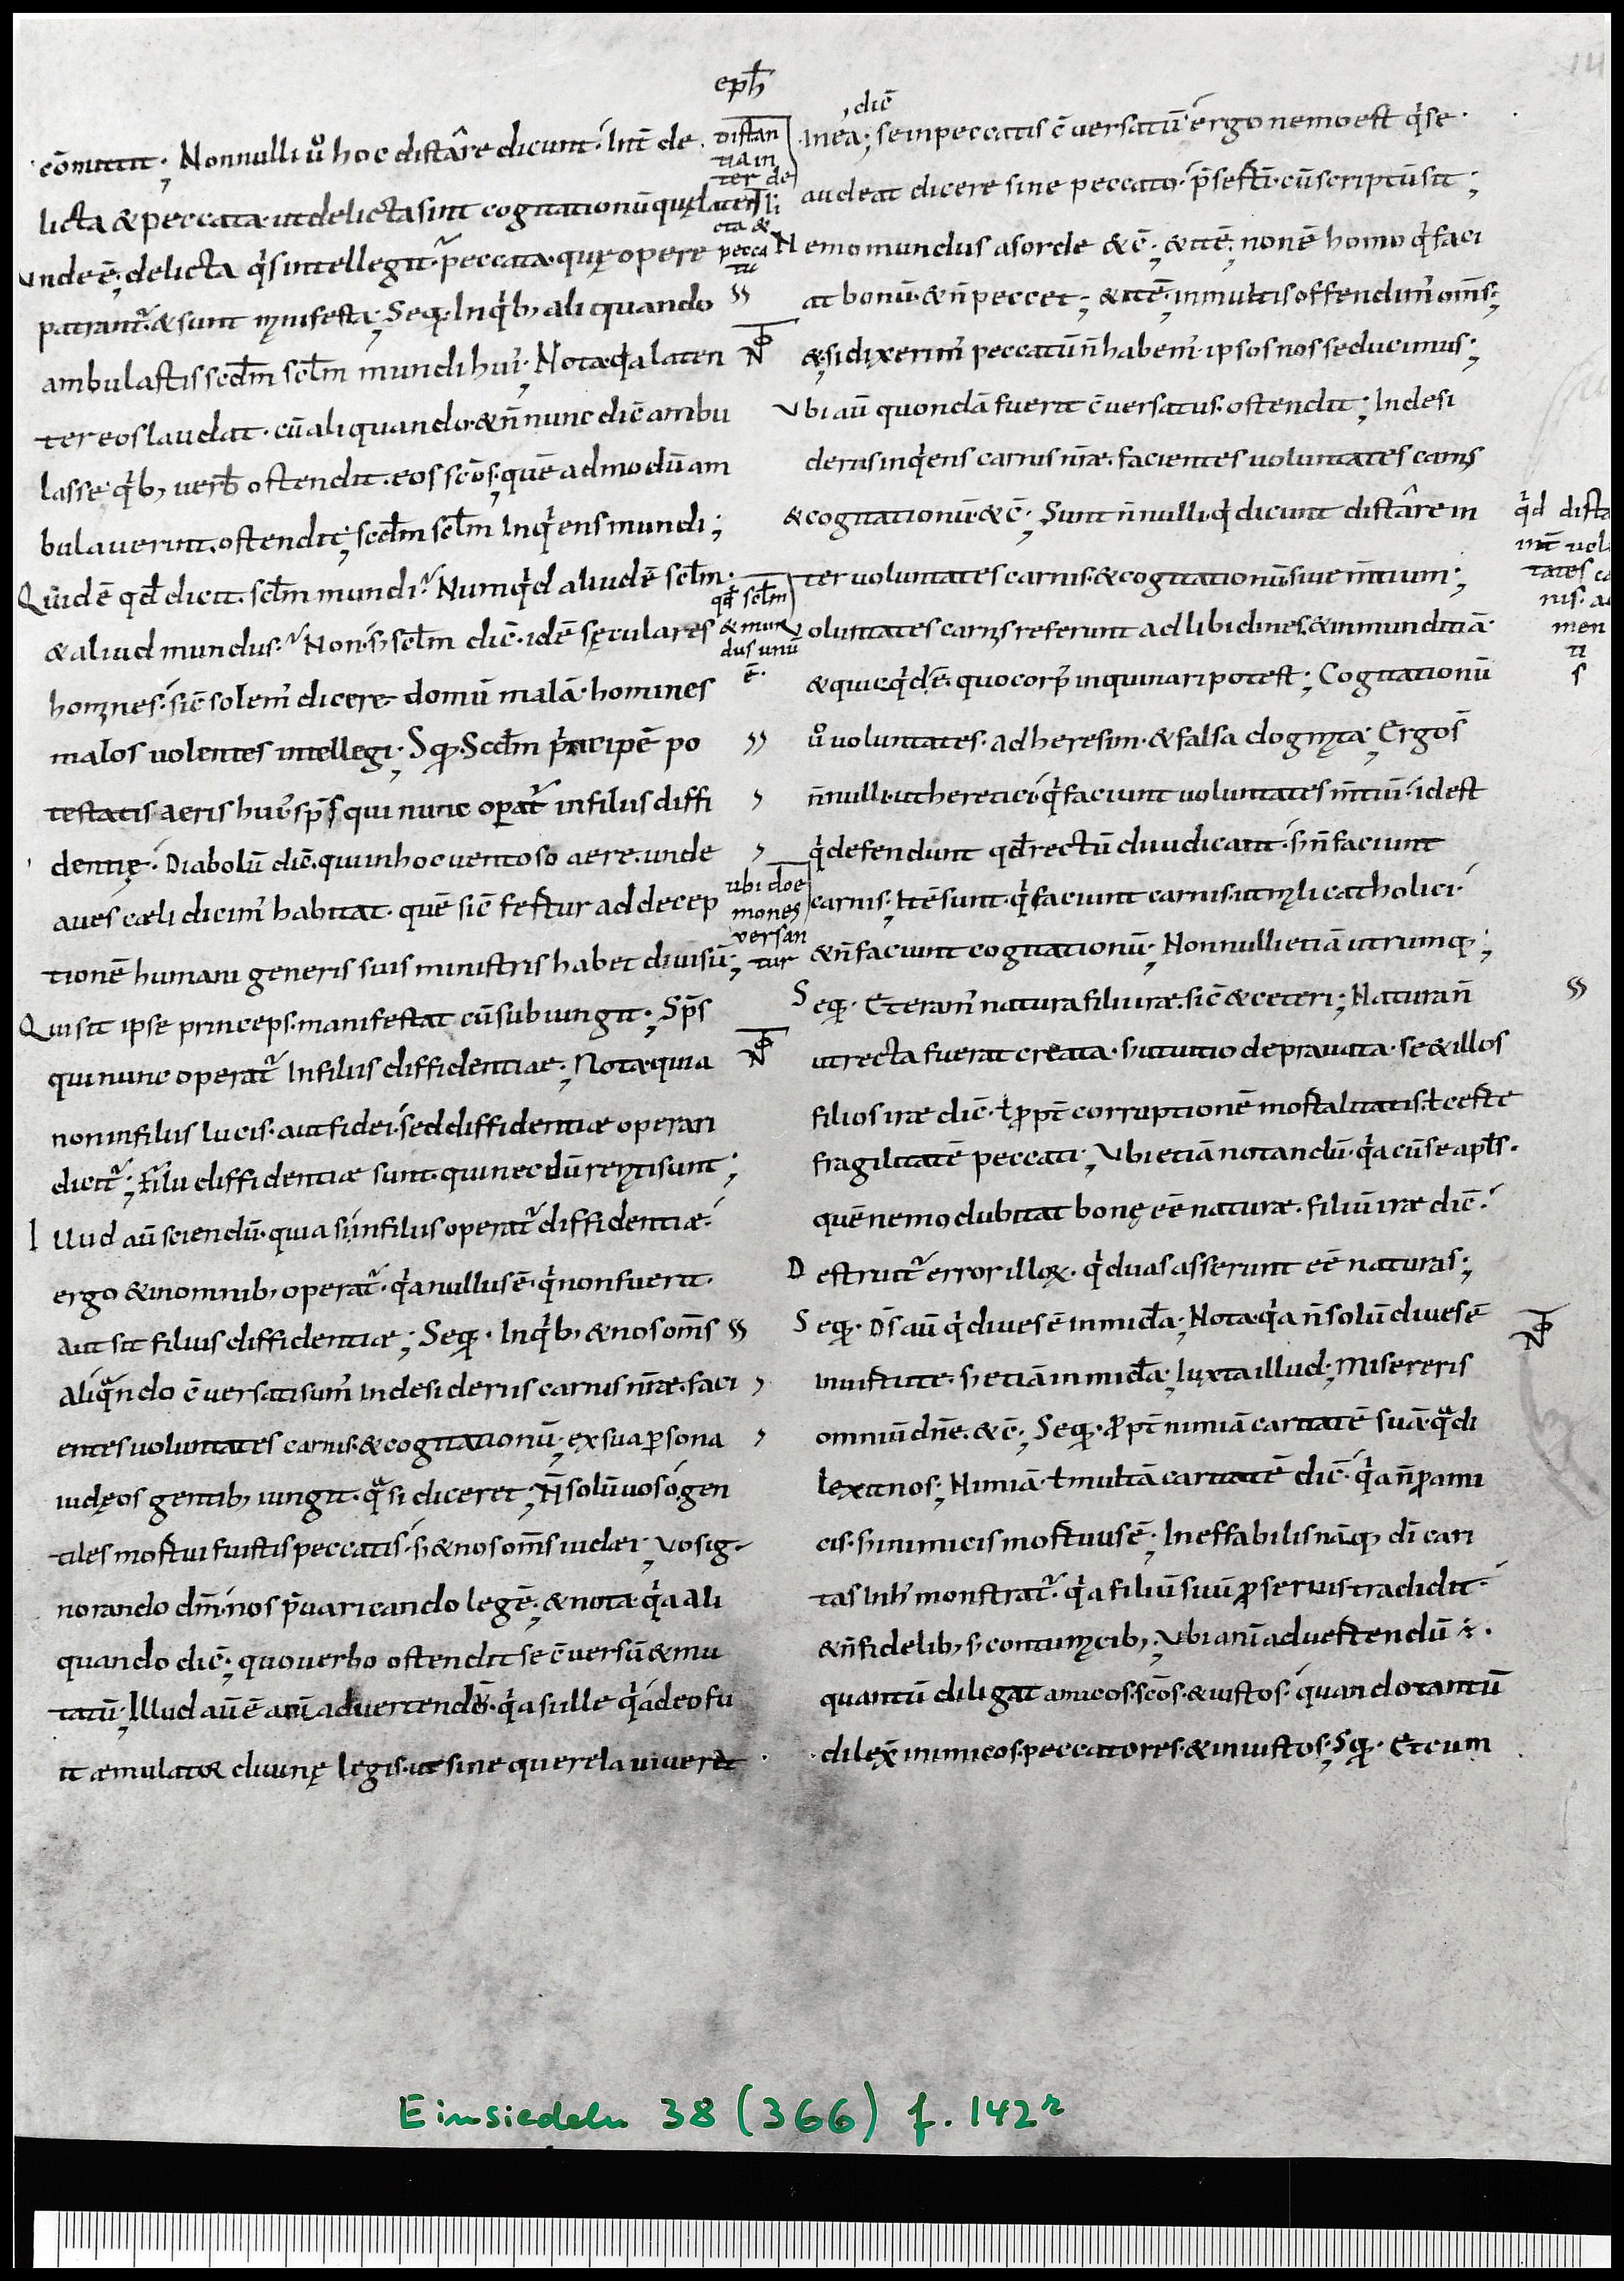 eph̄
cōmittit; Nonnulli ů hoc distâre dicunt. Int̄ de
licta & peccata. ut delicta sint cogitationū quę latent
Unde ē; delicta q̊s intellegit. peccata. quę opere
patrant̃. & sunt manifesta; Seq̄. In q̊b; aliquando
ambulastis scd̄m scl̄m mundi hui'; Nota q̊a laten
ter eos laudat. cū aliquando. & n̄ nunc dic̄ ambu
lasse. q̊b; uerb̄ ostendit. eos sc̄os; quē ad modū am
bulauerint. ostendit; scd̄m scl̄m inq̊ens mundi;
Quid ē qd̄ dicit. scl̄m mundi? Numq̊d aliud ē scl̄m.
& aliud mundus? Non. s; scl̄m dic̄. idē sęculares
homines. sic̄ solem' dicere. domū malā. homines
malos uolentes intellegi; Sq̄. Scd̄m principē po
testatis aeris hui'. sp̄s qui nunc operat̃ in filiis diffi
dentię. Diabolū dic̄. qui in hoc uentoso aere. unde
aues cæli dicim' habitat. quē sic̄ fertur ad decep
tionē humani generis suis ministris habet diuisū;
Qui sit ipse princeps. manifestat cū subiungit; Sp̄s
qui nunc operat̃ in filiis diffidentiae; Nota quia
non in filiis lucis. aut fidei. sed diffidentiæ operari
dicit̃; Filii diffidentiæ sunt. qui necdū renati sunt;
Illud aū sciendū. quia si in filiis operat̃ diffidentiæ.
ergo & in omnib; operat̃. q̊a nullus ē. q̊ non fuerit.
Aut sit filius diffidentiæ; Seq̄. In q̊b; & nos om̄s
aliquando c̄uersati sum' in desideriis carnis nr̄æ. faci
entes uoluntates carnis. & cogitationū; ex sua persona
iudęos gentib; iungit. qͣsi diceret; N̄ solū uos o gen
tiles mortui fuistis peccatis. s; & nos om̄s iudæi; uos ig
norando dm̄. nos p̄uaricando legē; & nota q̊a ali
quando dic̄; quo uerbo ostendit se c̄uersū & mu
tatū; Illud aū ē anī aduertendū. q̊a si ille q̊ adeo fu
it æmulator diuinę legis. ut sine querela uiueret
distan
tia in
ter de
li
cta &
pecca
ta
qd̄ scl̄m
& mun
dus unū
ē.
ubi doe
mones
uersan
tur
dic̄
in ea; se in peccatis c̄uersatū. ergo nemo est q̊ se
audeat dicere sine peccato. p̄sertī. cū scriptū sit;
Nemo mundus a sorde &c̄; & itē; non ē homo q̊ faci
at bonū. & n̄ peccet; & itē; in multis offendim' om̄s;
&; si dixerim' peccatū n̄ habem'. ipsos nos seducimus;
Ubi aū quondā fuerit c̄uersatus. ostendit; In desi
deriis inq̊ens carnis nr̄æ. facientes uoluntates carnis
& cogitationū. &c̄; Sunt n̄nulli. q̊ dicunt distâre in
ter uoluntates carnis. & cogitationū. siue m̄tium;
Uoluntates carnis referunt ad libidines. & inmunditiā.
& quicq̊d ē. quo corp' inquinari potest; Cogitationū
ů uoluntates. ad heresim. & falsa dogmata; Ergo s̄
n̄nulli. ut heretici. q̊ faciunt uoluntates m̄tiū. id est
q̊ defendunt qd̄ rectū diiudicant. s; n̄ faciunt
carnis; Itē sunt. q̊ faciunt carnis. ut mali catholici.
& n̄ faciunt cogitationū; Nonnulli etiā utrumq;;
Seq̄. Et eram' natura filii iræ. sic̄ & ceteri; Natura n̄
ut recta fuerat creata. s; ut uitio deprauata. se & illos
filios iræ dic̄. ł ꝓpt̄ corruptionē mortalitatis. ł certe
fragilitatē peccati; Ubi etiā notandū. q̊a cū se apl̄s.
quē nemo dubitat bonę eē naturæ. filiū iræ dic̄.
Destruit̃ error illoꝝ. q̊ duas asserunt eē naturas;
Seq̄. Ds̄ aū q̊ diues ē in mīa; Nota q̊a n̄ solū diues ē
in uirtute. s; etiā in mīa; Iuxta illud; Misereris
omniū dn̄e. &c̄; Seq̄. ꝓpt̄ nimiā caritatē suā. qͣ di
lexit nos; Nimiā. ł multā caritatē dic̄. q̊a n̄ ꝓ ami
cis. s; inimicis mortuus ē; Ineffabilis nāq; dī cari
tas in h' monstrat̃. q̊a filiū suū ꝓ seruis tradidit
& n̄ fidelib; s; contumacib;; Ubi anī aduertendū ÷.
quantū diligat amicos. sc̄os. & iustos. quando tantū
dilex̄ inimicos. peccatores. & iniustos; Sq̄. Et cum
q̊d dista
int̄ uol
tates ca
nis. ac
men
ti
s
Einsiedeln 38 (366) f. 142r